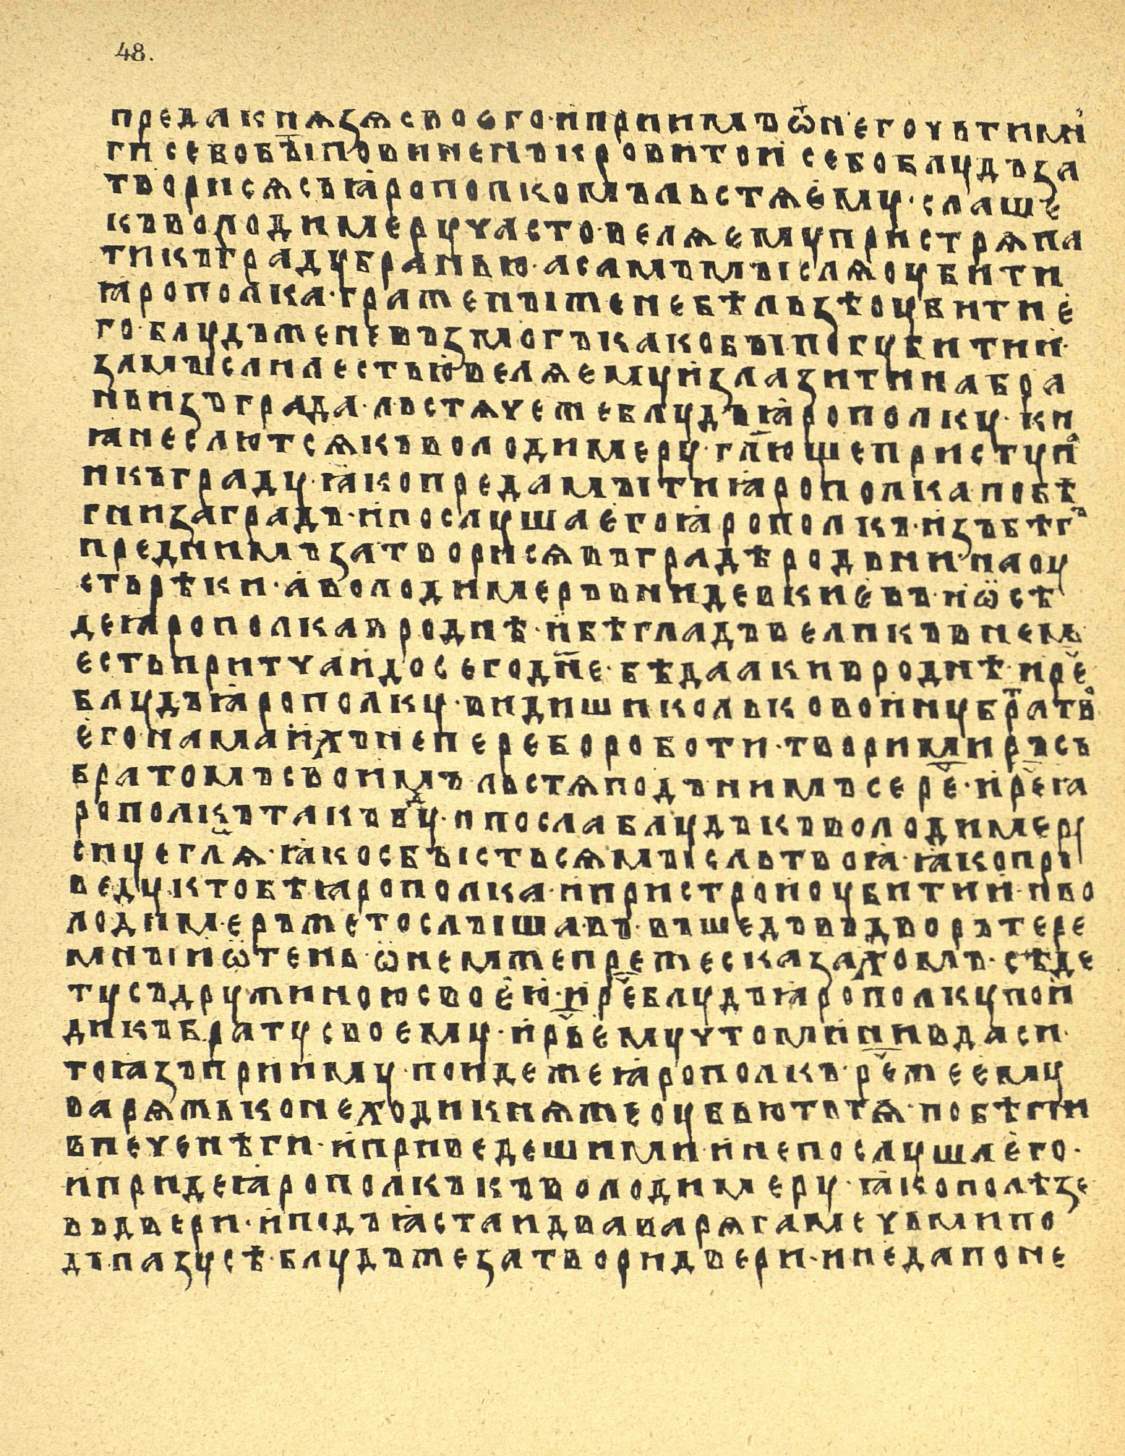 48.
предакнѧзѧсвоѥго·и҆приимъѿнегочьтиⷨ
гисевобѣіповиненъкровитои҆себоблудъза
творисѧсъꙗрополкомъльстѧє҆му·слаше
къволодимеручасто·велѧємупристрѧпа
тикъградубранью·асамъмъіслѧоубити
ꙗрополка·граженъіженебѣльзѣоубитиє҆
го·блудъженевъзмогъкакобъіпогубитии҆·
замъіслилестьювелѧємуи҆злазитинабра
ньизъграда·льстѧчежеблудъꙗрополку·ки
ꙗнеслютсѧкъволодимеру·гл҃ющеприступⷤ
икъграду·ꙗкопредамъітиꙗрополкапобѣ
гнизаградъ·и҆послушаєгоꙗрополкъ·и҆збѣгъ
предънимъзатворисѧвъградѣродьнинаоу
стьрѣки·а҆володимеръвнидевкиєвъ·и҆ѡ҆сѣ
деꙗрополкавроднѣ·и҆бѣгладъвеликъвнемь
єстьпритчаидосегодн҃е·бѣдаакивроднѣ·ирⷱ҇е
блудъꙗрополку·видишиколькововои҆убрат҃вⷪ
є҆гонамаи҆хънеперебороботи·творимиръсъ
братомъсвоимъльстѧподънимъсерⷱ҇е·и҆рⷱ҇еꙗ
рополкътакъбⷣу·ипослаблудъкъволодимеру
сицегл҃ѧ·ꙗкосбъістьсѧмъісльтвоꙗ·ꙗкопри
ведуктобѣꙗрополка·и҆пристрои҆оубитии҆·иво
лодимеръжетослъішавъ·въшедъвъдворътере
мнъіи҆ѿтень·ѡ҆немжепрежесказахомъ·сѣде
тусъдружиноюсвоєю·и҆рⷱ҇еблудъꙗрополкупои҆
дикъбратусвоєму·и҆рⷱ҇ьємучтомнинивдаси·
тоꙗзъприиму·поидежеꙗрополкъ·рⷱ҇ежеєму
варѧжьконеходикнѧжеоубьютьтѧ·побѣгни
впеченѣги·и҆приведешимии·и҆непослушає҆го·
и҆придеꙗрополкъкъволодимеру·ꙗкополѣзе
въдвери·и҆подъꙗстаидваварѧгамечьмипо
дъпазусѣ·блудъжезатворидвери·и҆недапоне